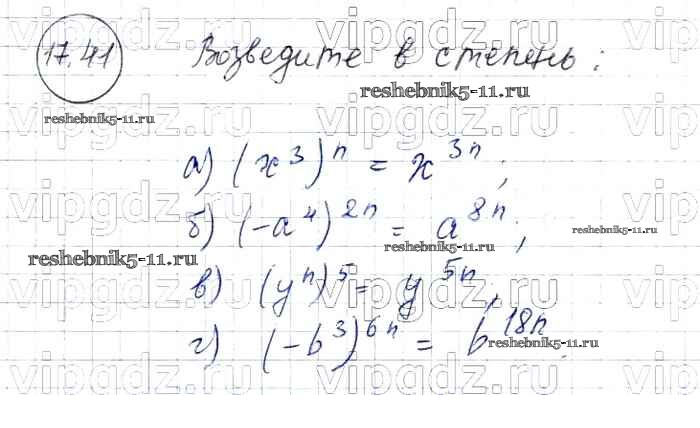 17.41 Возведите в степень:
reshebnik5-11.ru
reshebnik5-11.ru
а) (x³)ⁿ = x³ⁿ;
б) (-a⁴)²ⁿ = a⁸ⁿ;
reshebnik5-11.ru
reshebnik5-11.ru
reshebnik5-11.ru
в) (yⁿ)⁵ = y⁵ⁿ,
г) (-b³)⁶ⁿ = b¹⁸ⁿ.
reshebnik5-11.ru
vipgdz.ru vipgdz.ru vip
vipgdz.ru vipgdz.ru vip
vipgdz.ru vipgdz.ru vip
vipgdz.ru vipgdz.ru vip
vipgdz.ru vipgdz.ru vip